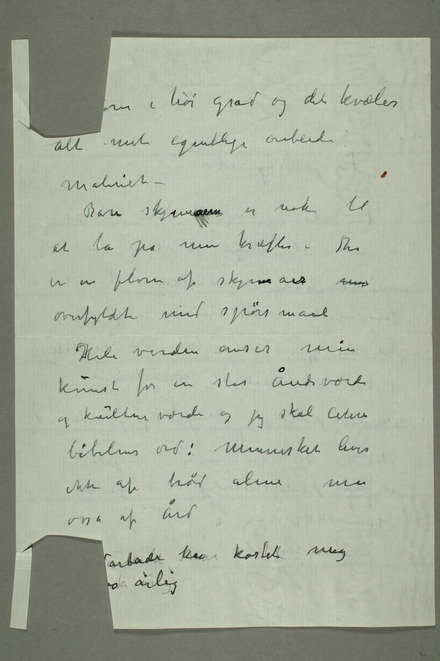 i høi grad og det kvæler
alt mit egentlige arbeide
Bare skjemaer er nok til
at ta på mine kræfter – Der
er en flom af skjemaer
overfyldte med spørsmaal
Hele verden anser min
kunst for en stor Åndsværdi
og kulturværdi og jeg skal citere
bibelens ord: Mennesket lever
ikke af brød alene men
ossa af Ånd
kostet meg
årlig